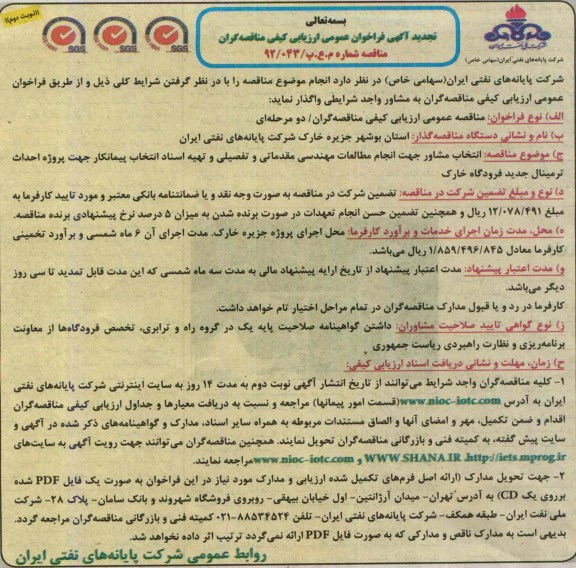 //نوبت دوم//
SGS SGS SGS
بسمه‌تعالی
تجدید آگهی فراخوان عمومی ارزیابی کیفی مناقصه‌گران
مناقصه شماره م.ع.پ/۹۲/۰۴۳
شرکت پایانه‌های نفتی ایران(سهامی خاص)
شرکت پایانه‌های نفتی ایران(سهامی خاص) در نظر دارد انجام موضوع مناقصه را با در نظر گرفتن شرایط کلی ذیل و از طریق فراخوان
عمومی ارزیابی کیفی مناقصه‌گران به مشاور واجد شرایطی واگذار نماید:
الف) نوع فراخوان: مناقصه عمومی ارزیابی کیفی مناقصه‌گران/ دو مرحله‌ای
ب) نام و نشانی دستگاه مناقصه‌گذار: استان بوشهر جزیره خارک شرکت پایانه‌های نفتی ایران
ج) موضوع مناقصه: انتخاب مشاور جهت انجام مطالعات مهندسی مقدماتی و تفصیلی و تهیه اسناد انتخاب پیمانکار جهت پروژه احداث
ترمینال جدید فرودگاه خارک
د) نوع و مبلغ تضمین شرکت در مناقصه: تضمین شرکت در مناقصه به صورت وجه نقد و یا ضمانتنامه بانکی معتبر و مورد تایید کارفرما به
مبلغ ۱۲/۰۷۸/۴۹۱ ریال و همچنین تضمین حسن انجام تعهدات در صورت برنده شدن به میزان ۵ درصد نرخ پیشنهادی برنده مناقصه.
ه) محل، مدت زمان اجرای خدمات و برآورد کارفرما: محل اجرای پروژه جزیره خارک. مدت اجرای آن ۶ ماه شمسی و برآورد تخمینی
کارفرما معادل ۱/۸۵۹/۴۹۶/۸۴۵ ریال می‌باشد.
و) مدت اعتبار پیشنهاد: مدت اعتبار پیشنهاد از تاریخ ارایه پیشنهاد مالی به مدت سه ماه شمسی که این مدت قابل تمدید تا سی روز
دیگر می‌باشد.
کارفرما در رد و یا قبول مدارک مناقصه‌گران در تمام مراحل اختیار تام خواهد داشت.
ز) نوع گواهی تایید صلاحیت مشاوران: داشتن گواهینامه صلاحیت پایه یک در گروه راه و ترابری، تخصص فرودگاه‌ها از معاونت
برنامه‌ریزی و نظارت راهبردی ریاست جمهوری
ح) زمان، مهلت و نشانی دریافت اسناد ارزیابی کیفی:
۱- کلیه مناقصه‌گران واجد شرایط می‌توانند از تاریخ انتشار آگهی نوبت دوم به مدت ۱۴ روز به سایت اینترنتی شرکت پایانه‌های نفتی
ایران به آدرس www.nioc-iotc.com(قسمت امور پیمانها) مراجعه و نسبت به دریافت معیارها و جداول ارزیابی کیفی مناقصه‌گران
اقدام و ضمن تکمیل، مهر و امضای آنها و الصاق مستندات مربوطه به همراه سایر اسناد، مدارک و گواهینامه‌های ذکر شده در آگهی و
سایت پیش گفته، به کمیته فنی و بازرگانی مناقصه‌گران تحویل نمایند. همچنین مناقصه‌گران می‌توانند جهت رویت آگهی به سایت‌های
http://iets.mprog.ir، WWW.SHANA.IR و www.nioc-iotc.com مراجعه نمایند.
۲- جهت تحویل مدارک (ارائه اصل فرم‌های تکمیل شده ارزیابی و مدارک مورد نیاز در این فراخوان به صورت یک فایل PDF شده
برروی یک CD) به آدرس تهران- میدان آرژانتین- اول خیابان بیهقی- روبروی فروشگاه شهروند و بانک سامان- پلاک ۲۸- شرکت
ملی نفت ایران- طبقه همکف- شرکت پایانه‌های نفتی ایران- تلفن ۸۸۵۳۴۵۲۴-۰۲۱ کمیته فنی و بازرگانی مناقصه‌گران مراجعه گردد.
بدیهی است به مدارک ناقص و مدارکی که به صورت فایل PDF ارائه نمی‌گردد ترتیب اثر داده نخواهد شد.
روابط عمومی شرکت پایانه‌های نفتی ایران